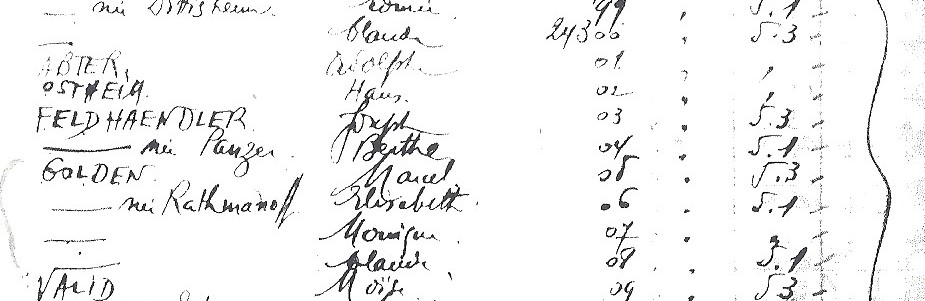 — née Dottisheim 99 " 5.1 -
— Claude 24300 " 5.3 -
ABTER, Adolphe 01 " "
OSTHEIM Hans 02 " "
FELDHAENDLER Joseph 03 5.3 -
— née Panzer Berthe 04 " 5.1 -
GOLDEN Marcel 05 " 5.3 -
— née Rathmanoff Elisabeth 06 " 5.1 -
— Monique 07 " "
— Claude 08 " 5.1 -
VALID Moïse 09 " 5.3 -